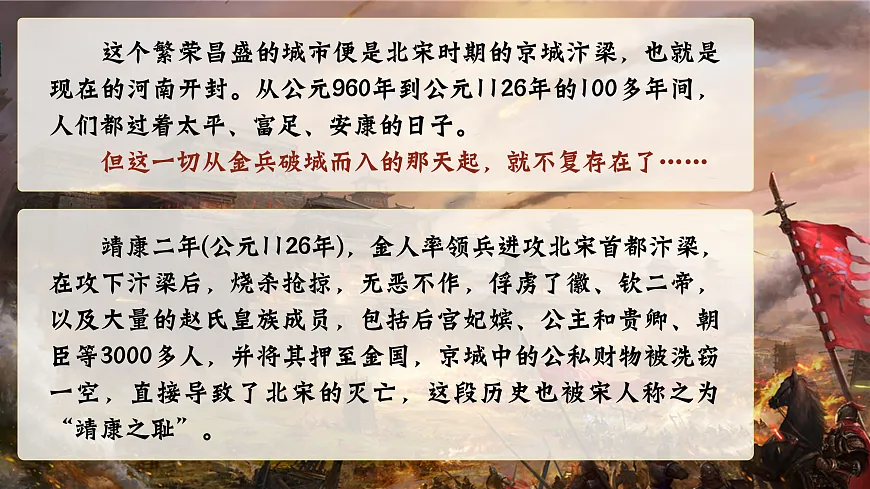 这个繁荣昌盛的城市便是北宋时期的京城汴梁，也就是
现在的河南开封。从公元960年到公元1126年的100多年间，
人们都过着太平、富足、安康的日子。
但这一切从金兵破城而入的那天起，就不复存在了……
靖康二年(公元1126年)，金人率领兵进攻北宋首都汴梁，
在攻下汴梁后，烧杀抢掠，无恶不作，俘虏了徽、钦二帝，
以及大量的赵氏皇族成员，包括后宫妃嫔、公主和贵卿、朝
臣等3000多人，并将其押至金国，京城中的公私财物被洗窃
一空，直接导致了北宋的灭亡，这段历史也被宋人称之为
“靖康之耻”。